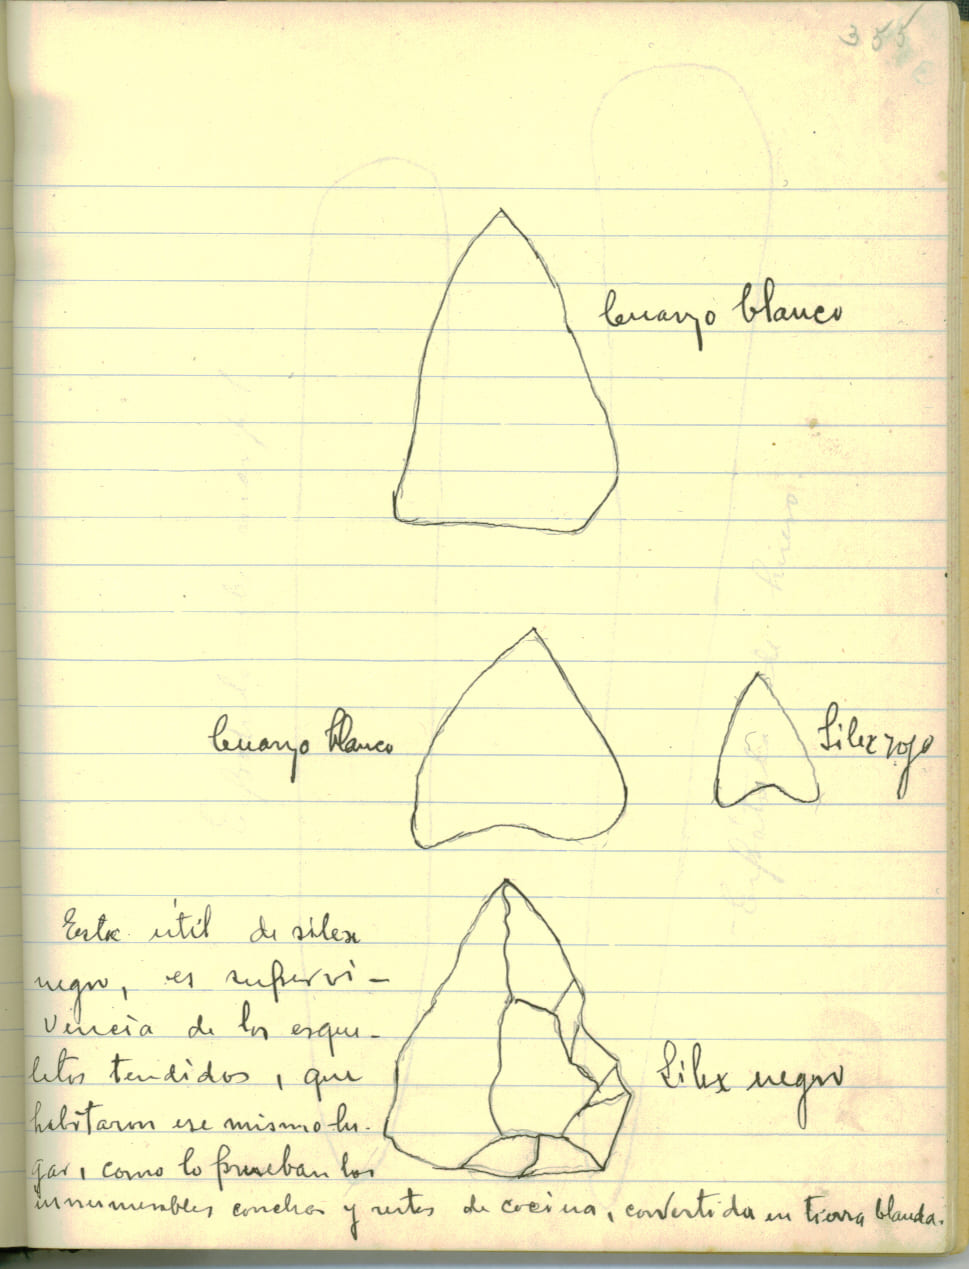 355
Cuarzo blanco
Cuarzo blanco
Silex rojo
Este útil de silex
negro, es supervi-
vencia de los esque-
letos tendidos, que
habitaron ese mismo lu-
gar, como lo prueban los
innumerables conchas y restos de cocina, convertida en tierra blanda.
Silex negro